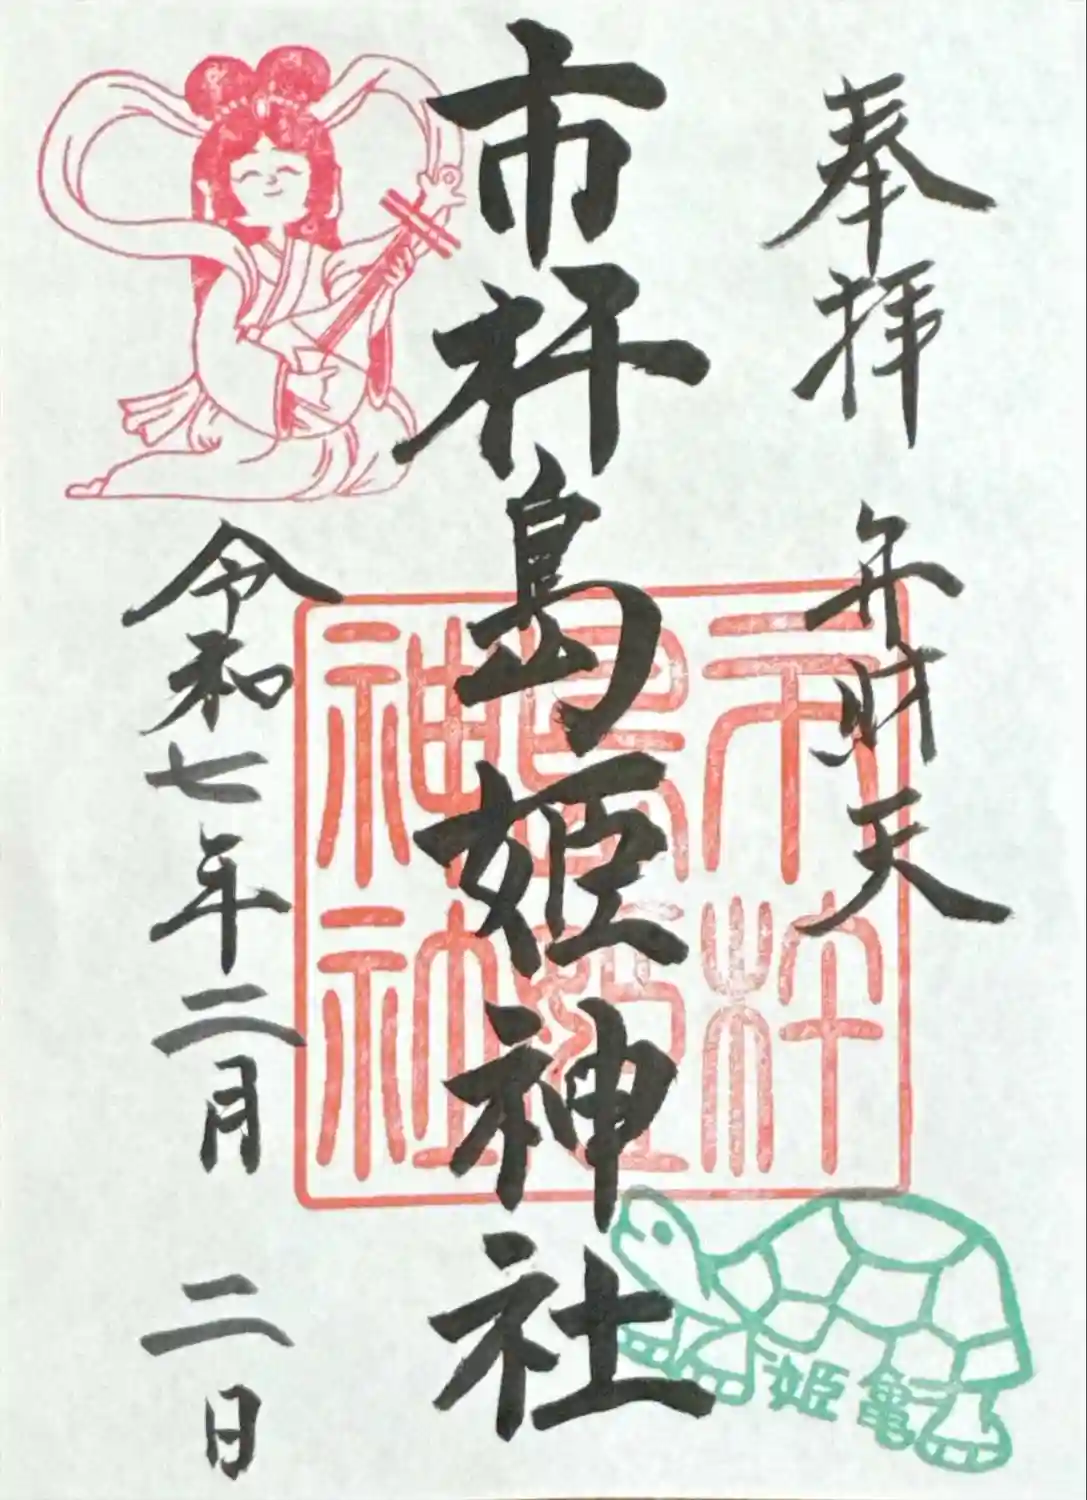 奉拝
弁財天
市杵島姫神社
令和七年二月二日
市杵
島姫
神社
姫亀